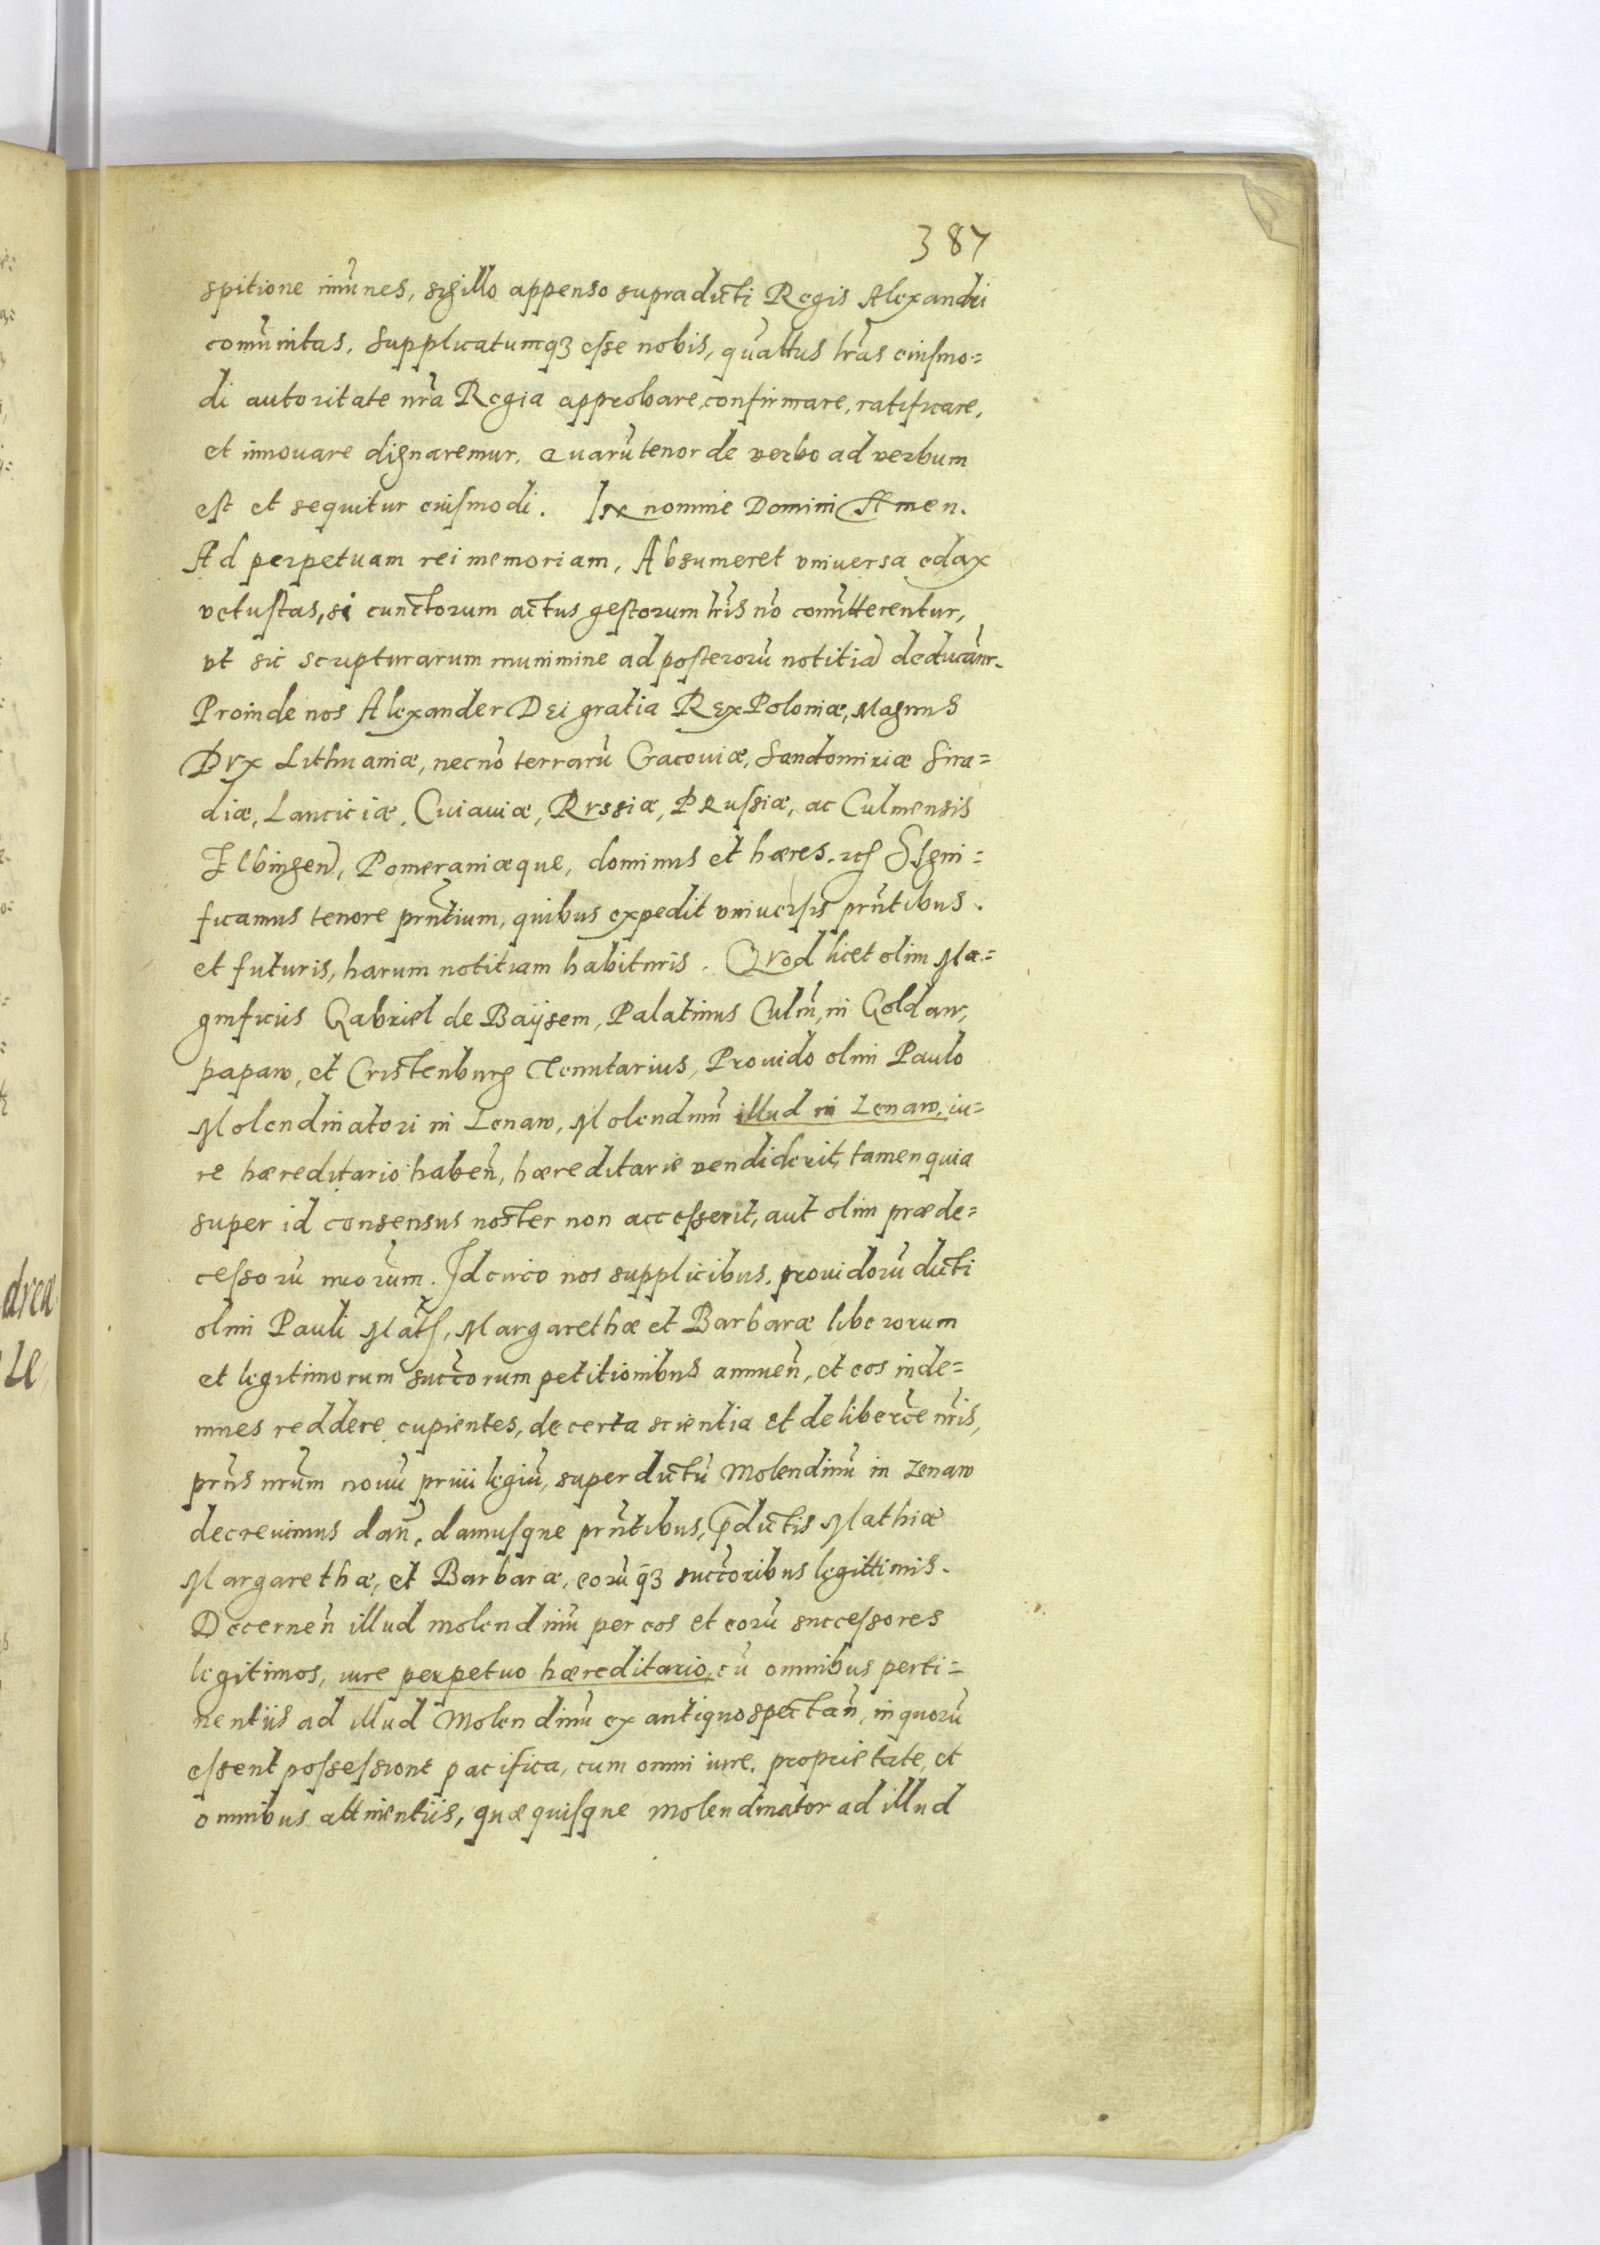 387
spitione imũnes, sigillo appenso supradicti Regis Alexandri
comũnitas, supplicatumqȝ esse nobis, quattus lr̃as eiusmo=
di autoritate nr̃a Regia approbare, confirmare, ratificare,
et innouare dignaremur, Quarũ tenor de verbo ad verbum
est et sequitur eiusmodi. In nomine Domini Amen.
Ad perpetuam rei memoriam, Absumeret vniuersa edax
vetustas, si cunctorum actus gestorum lr̃is nõ comĩtterentur,
vt sic scripturarum munimine ad posterorũ notitiã deducãnr.
Proinde nos Alexander Dei gratia Rex Poloniæ, Magnus
Dvx Lithuaniæ, necnõ terrarũ Cracouiæ, Sandomiriæ Sira=
diæ, Lanciciæ, Cuiauiæ, Rvssiæ, Prussiæ, ac Culmensis
Elbingeñ, Pomeraniæque, dominus et hæres. etc Signi=
ficamus tenore prñtium, quibus expedit vniuersis prñtibus.
et futuris, harum notitiam habituris. Qvod licet olim Ma=
gnificus Gabriel de Baÿsem, Palatinus Culm̃, in Goldaw,
papaw, et Cristenburg Tenutarius, Prouido olim Paulo
Molendinatori in Lenaw, Molendinũ illud in Lenaw, iu=
re hæreditario habeñ, hæreditarie vendiderit, tamen quia
super id consensus noster non accesserit, aut olim præde=
cessorũ nr̃orum. Idcirco nos supplicibus, prouidorũ dicti
olim Pauli Math, Margarethæ et Barbaræ liberorum
et legitimorum succ̃orum petitionibus annueñ, et eos inde=
mnes reddere cupientes, de certa scientia et deliberc̃e nr̃is,
prñs nr̃um nouũ priuilegiũ, super dictũ Molendinũ in Lenaw
decreuimus dañ, damusque prñtibus, p̃dictis Mathiæ
Margarethæ, et Barbaræ, eorũqȝ succ̃oribus legittimis.
Decerneñ illud molendinũ per eos et eorũ successores
legitimos, iure perpetuo hæreditario, cũ omnibus perti=
nentiis ad illud Molendinũ ex antiquo spectañ, in quorũ
essent possessione pacifica, cum omni iure, proprietate, et
omnibus attinentiis, quæ quisque Molendinator ad illud